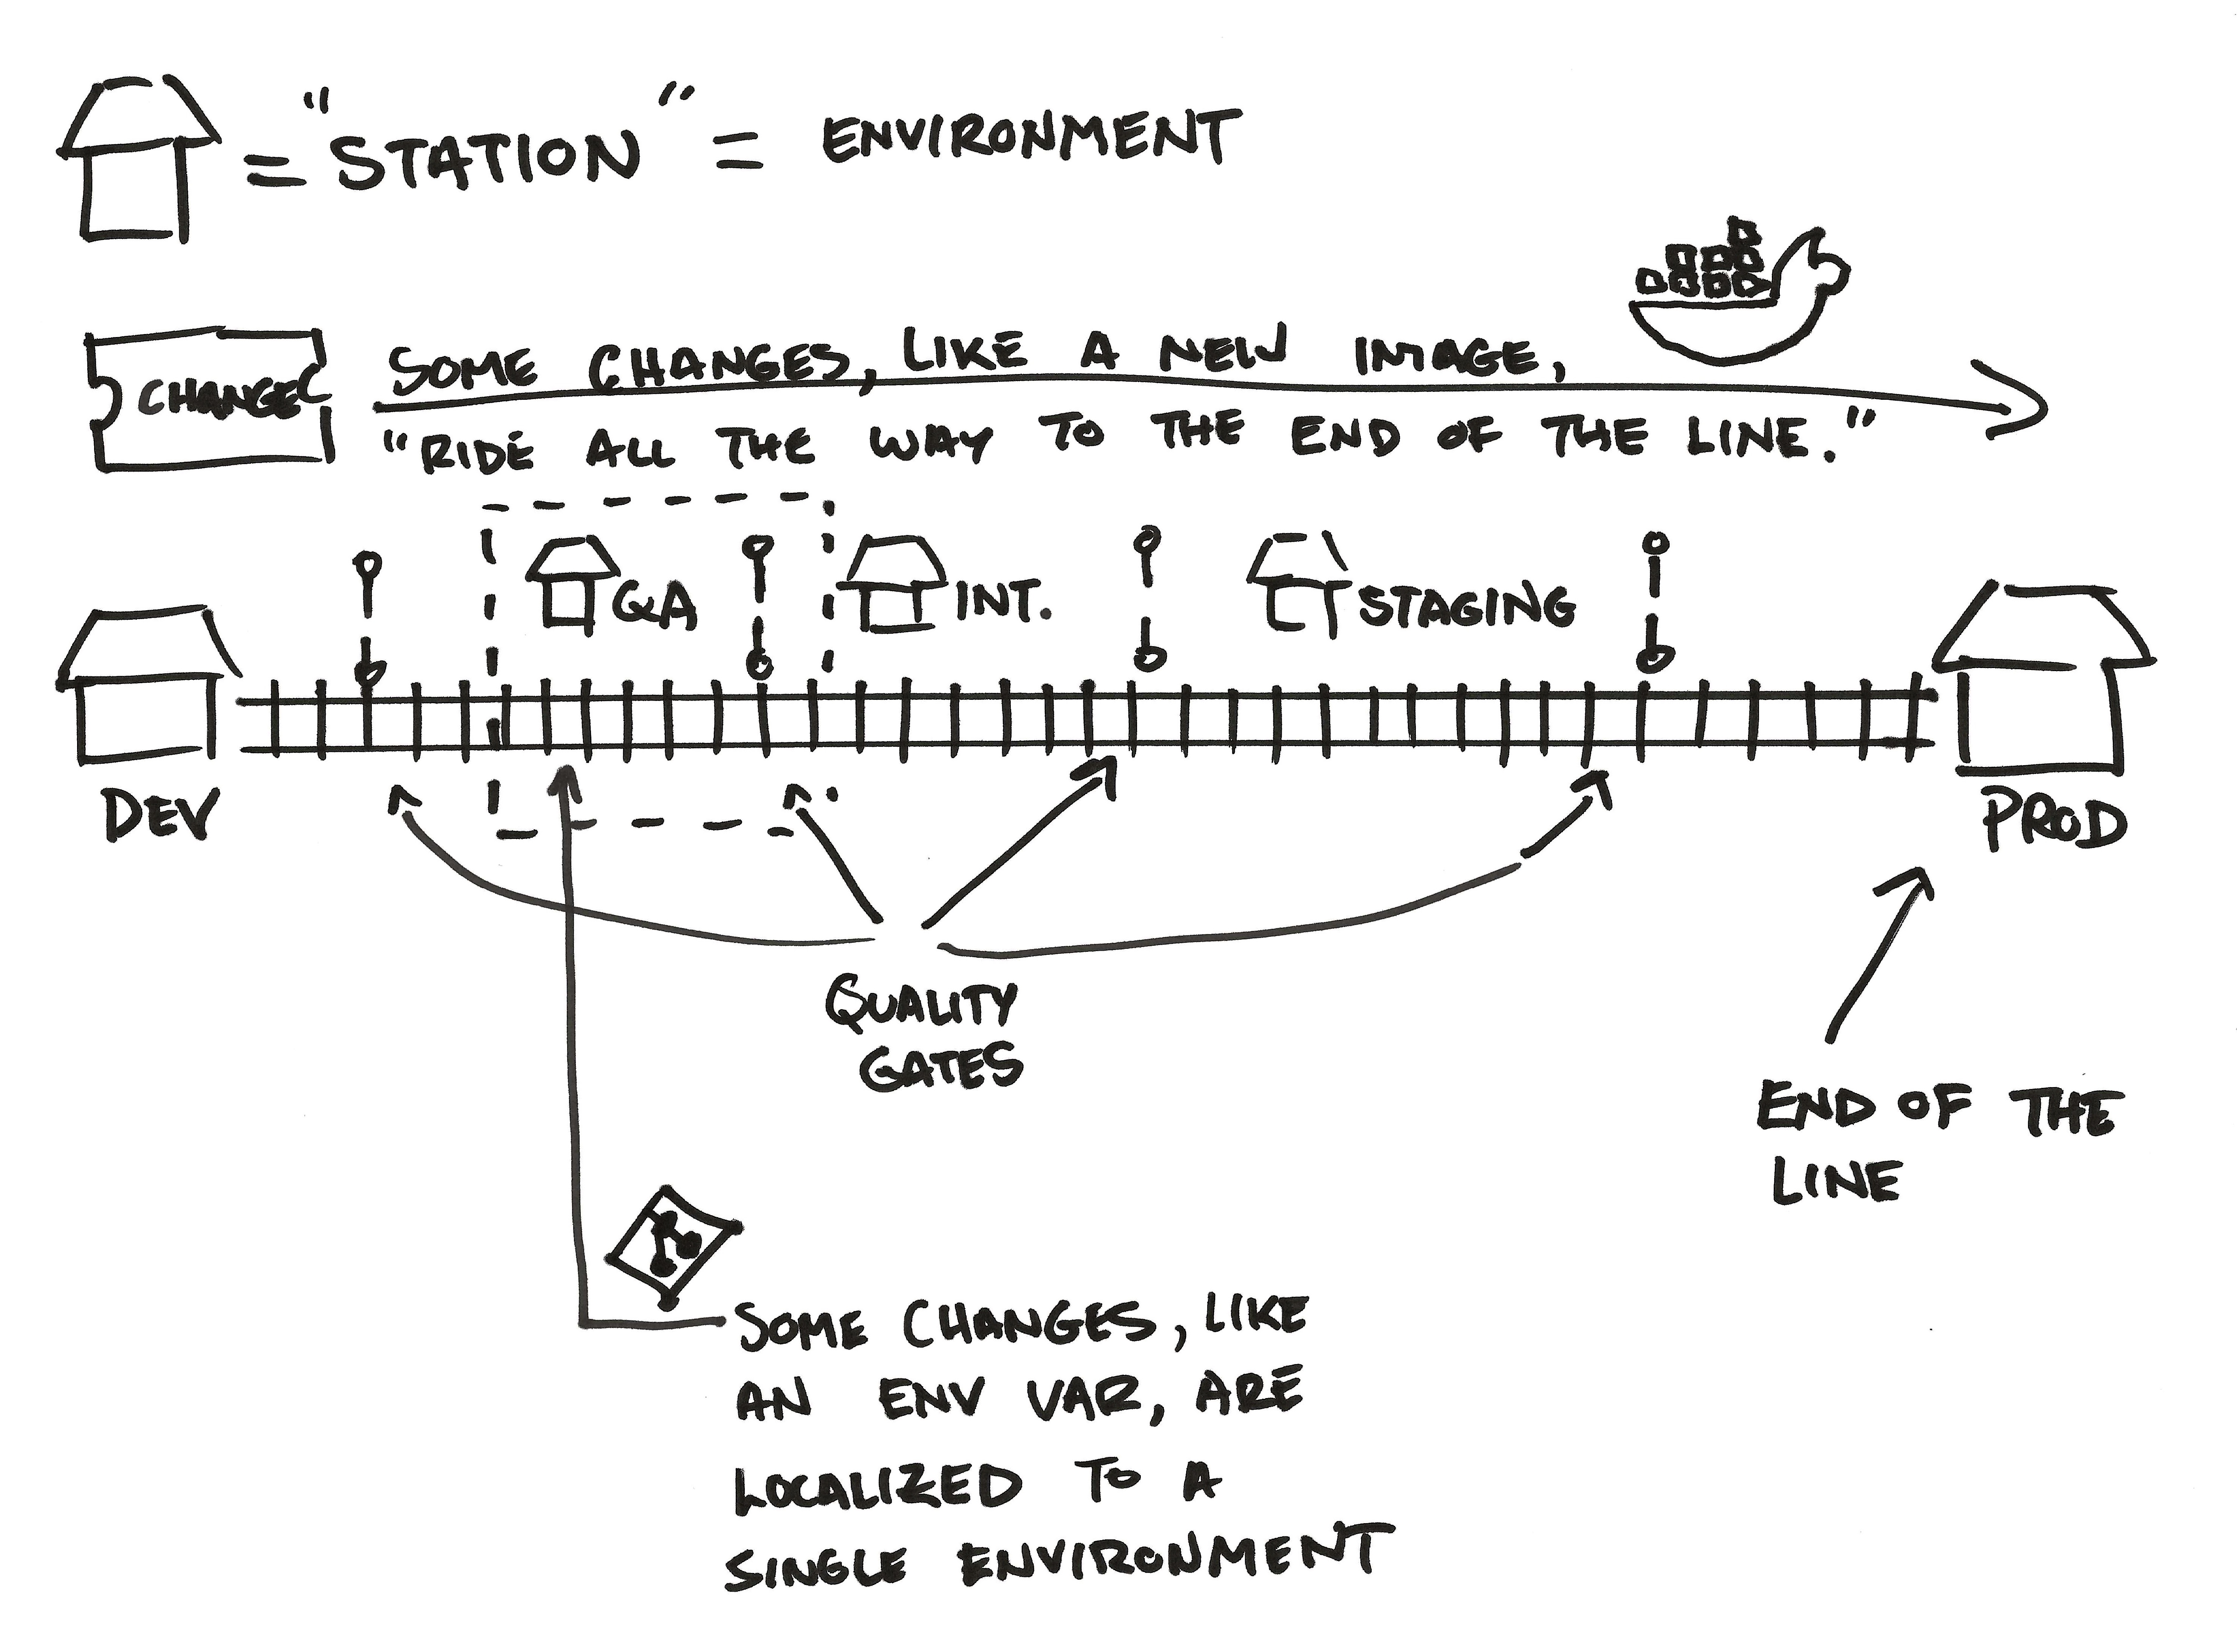 = "STATION" = ENVIRONMENT
CHANGE
SOME CHANGES, LIKE A NEW IMAGE,
"RIDE ALL THE WAY TO THE END OF THE LINE."
QA
INT.
STAGING
DEV
PROD
QUALITY
GATES
END OF THE
LINE
SOME CHANGES, LIKE
AN ENV VAR, ARE
LOCALIZED TO A
SINGLE ENVIRONMENT